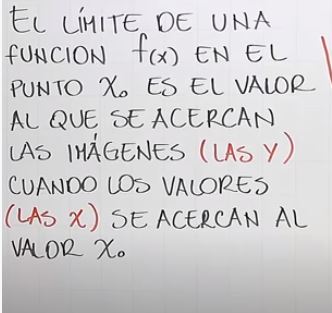 EL LÍMITE DE UNA
FUNCIÓN f(x) EN EL
PUNTO X₀ ES EL VALOR
AL QUE SE ACERCAN
LAS IMÁGENES (LAS Y)
CUANDO LOS VALORES
(LAS X) SE ACERCAN AL
VALOR X₀